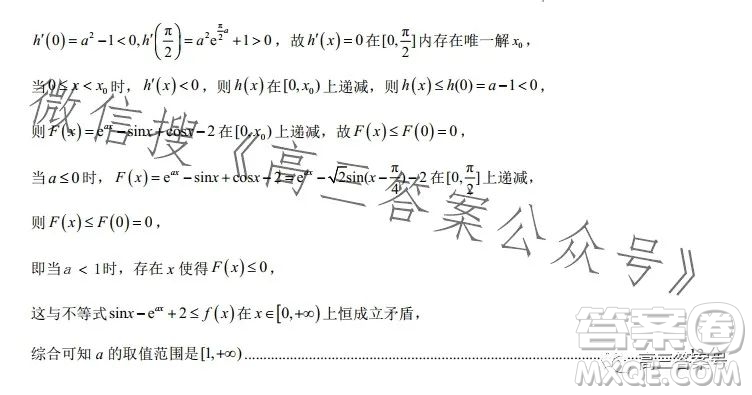 h′(0)=a²−1<0, h′(π/2)=a²e^{(π/2)a}+1>0，故h′(x)=0在[0,π/2]内存在唯一解x₀，
当0≤x<x₀时，h′(x)<0，则h(x)在[0,x₀)上递减，则h(x)≤h(0)=a−1<0，
则F(x)=e^{ax}−sinx+cosx−2在[0,x₀)上递减，故F(x)≤F(0)=0，
当a≤0时，F(x)=e^{ax}−sinx+cosx−2=e^{ax}−√2sin(x−π/4)−2在[0,π/2]上递减，
则F(x)≤F(0)=0，
即当a<1时，存在x使得F(x)≤0，
这与不等式sinx−e^{ax}+2≤f(x)在x∈[0,+∞)上恒成立矛盾，
综合可知a的取值范围是[1,+∞)
微信搜《高三答案公众号》
高三答案号
答案卷
MXQE.COM